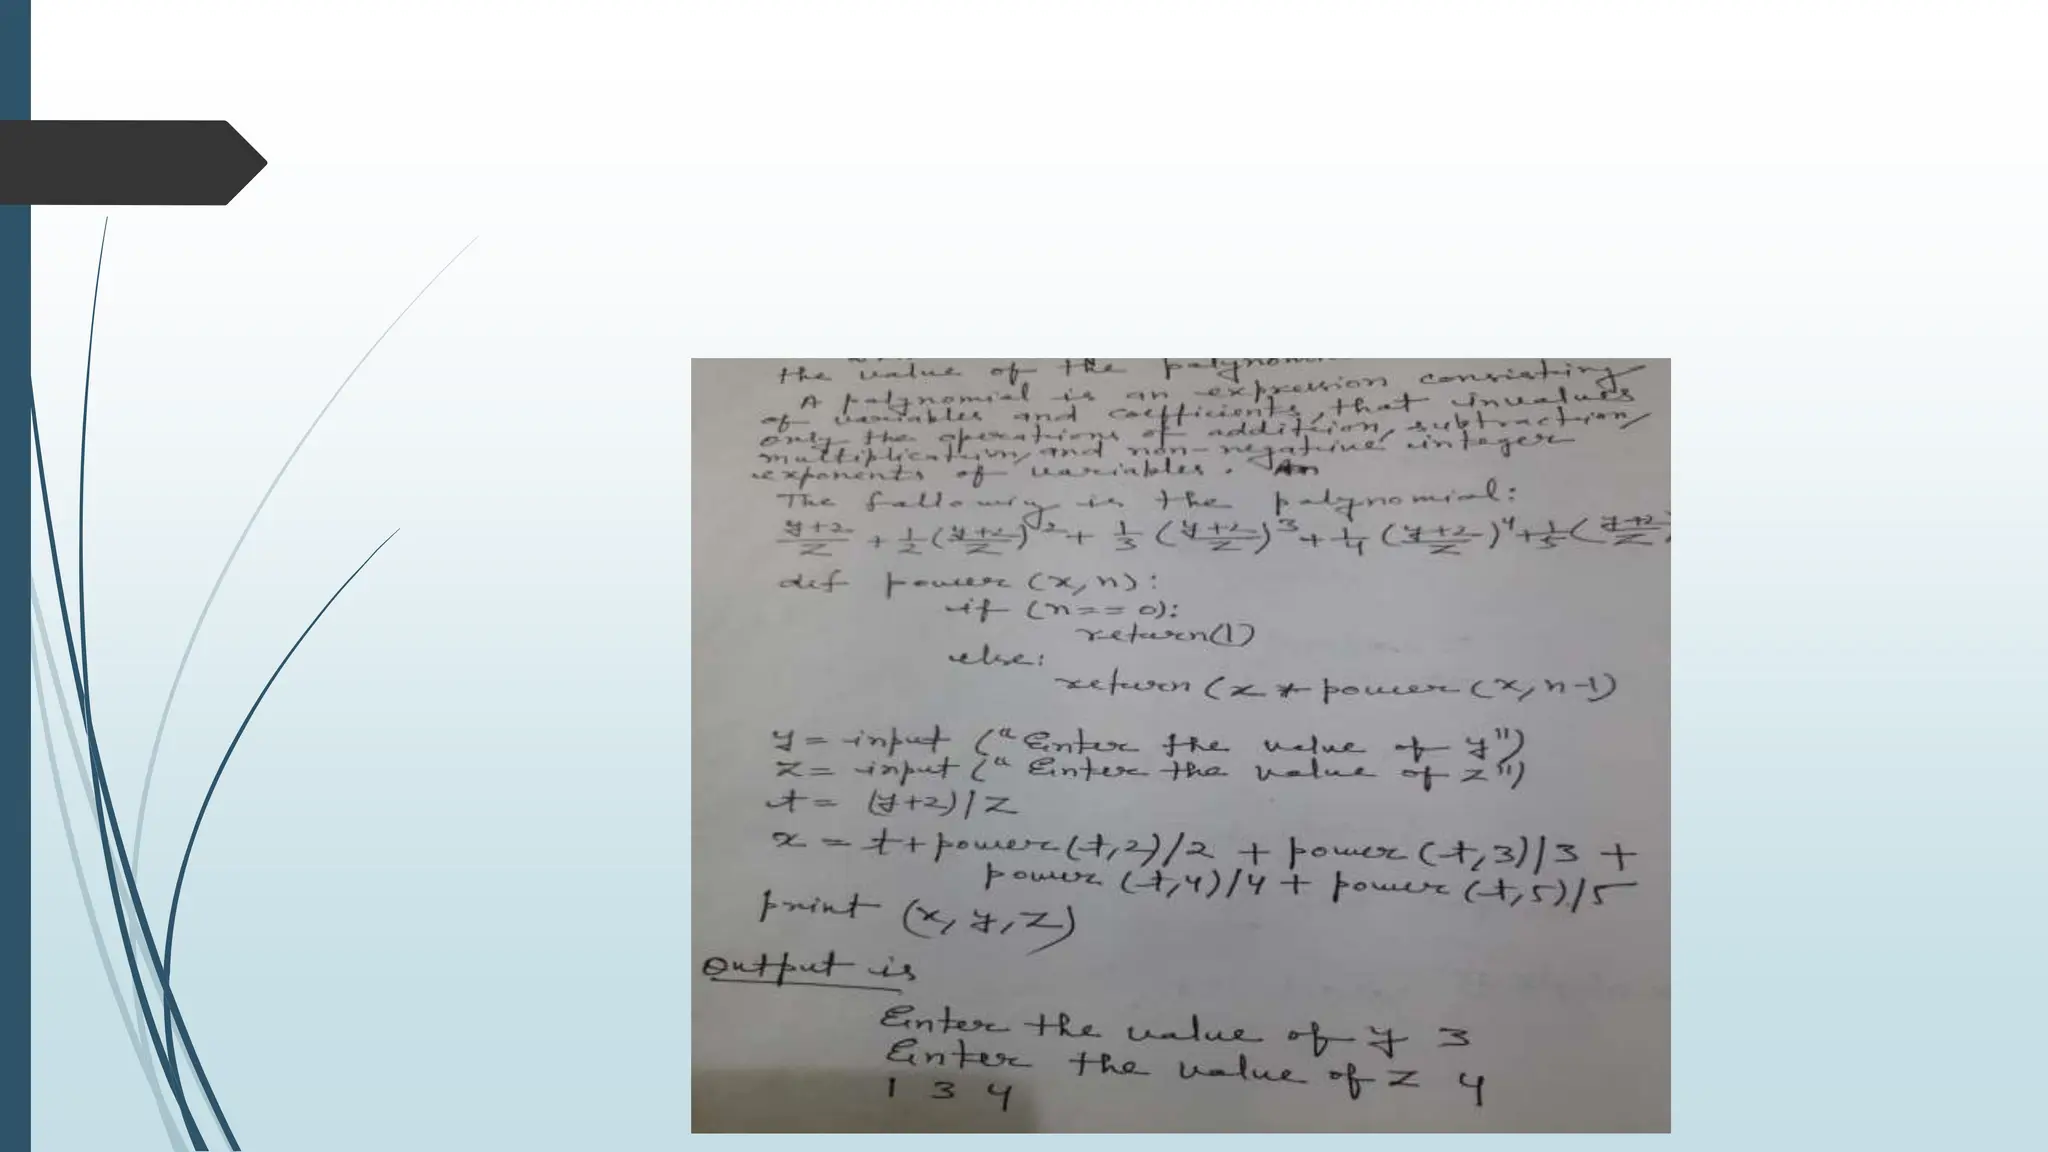 the value of the
A polynomial is an expression consisting
of variables and coefficients, that invalues
only the operations of addition, subtraction,
multiplication, and non-negative integer
exponents of variables.
The following is the polynomial:
y+2/z + 1/2 (y+2/z)^2 + 1/3 (y+2/z)^3 + 1/4 (y+2/z)^4 + 1/5 (y+2/z)
def power (x, n):
if (n == 0):
return(1)
else:
return (x * power (x, n-1)
y = input ("Enter the value of y")
z = input ("Enter the value of z")
t = (y+2)/z
x = t + power (t,2)/2 + power (t,3)/3 +
power (t,4)/4 + power (t,5)/5
print (x, y, z)
Output is
Enter the value of y 3
Enter the value of z 4
1 3 4